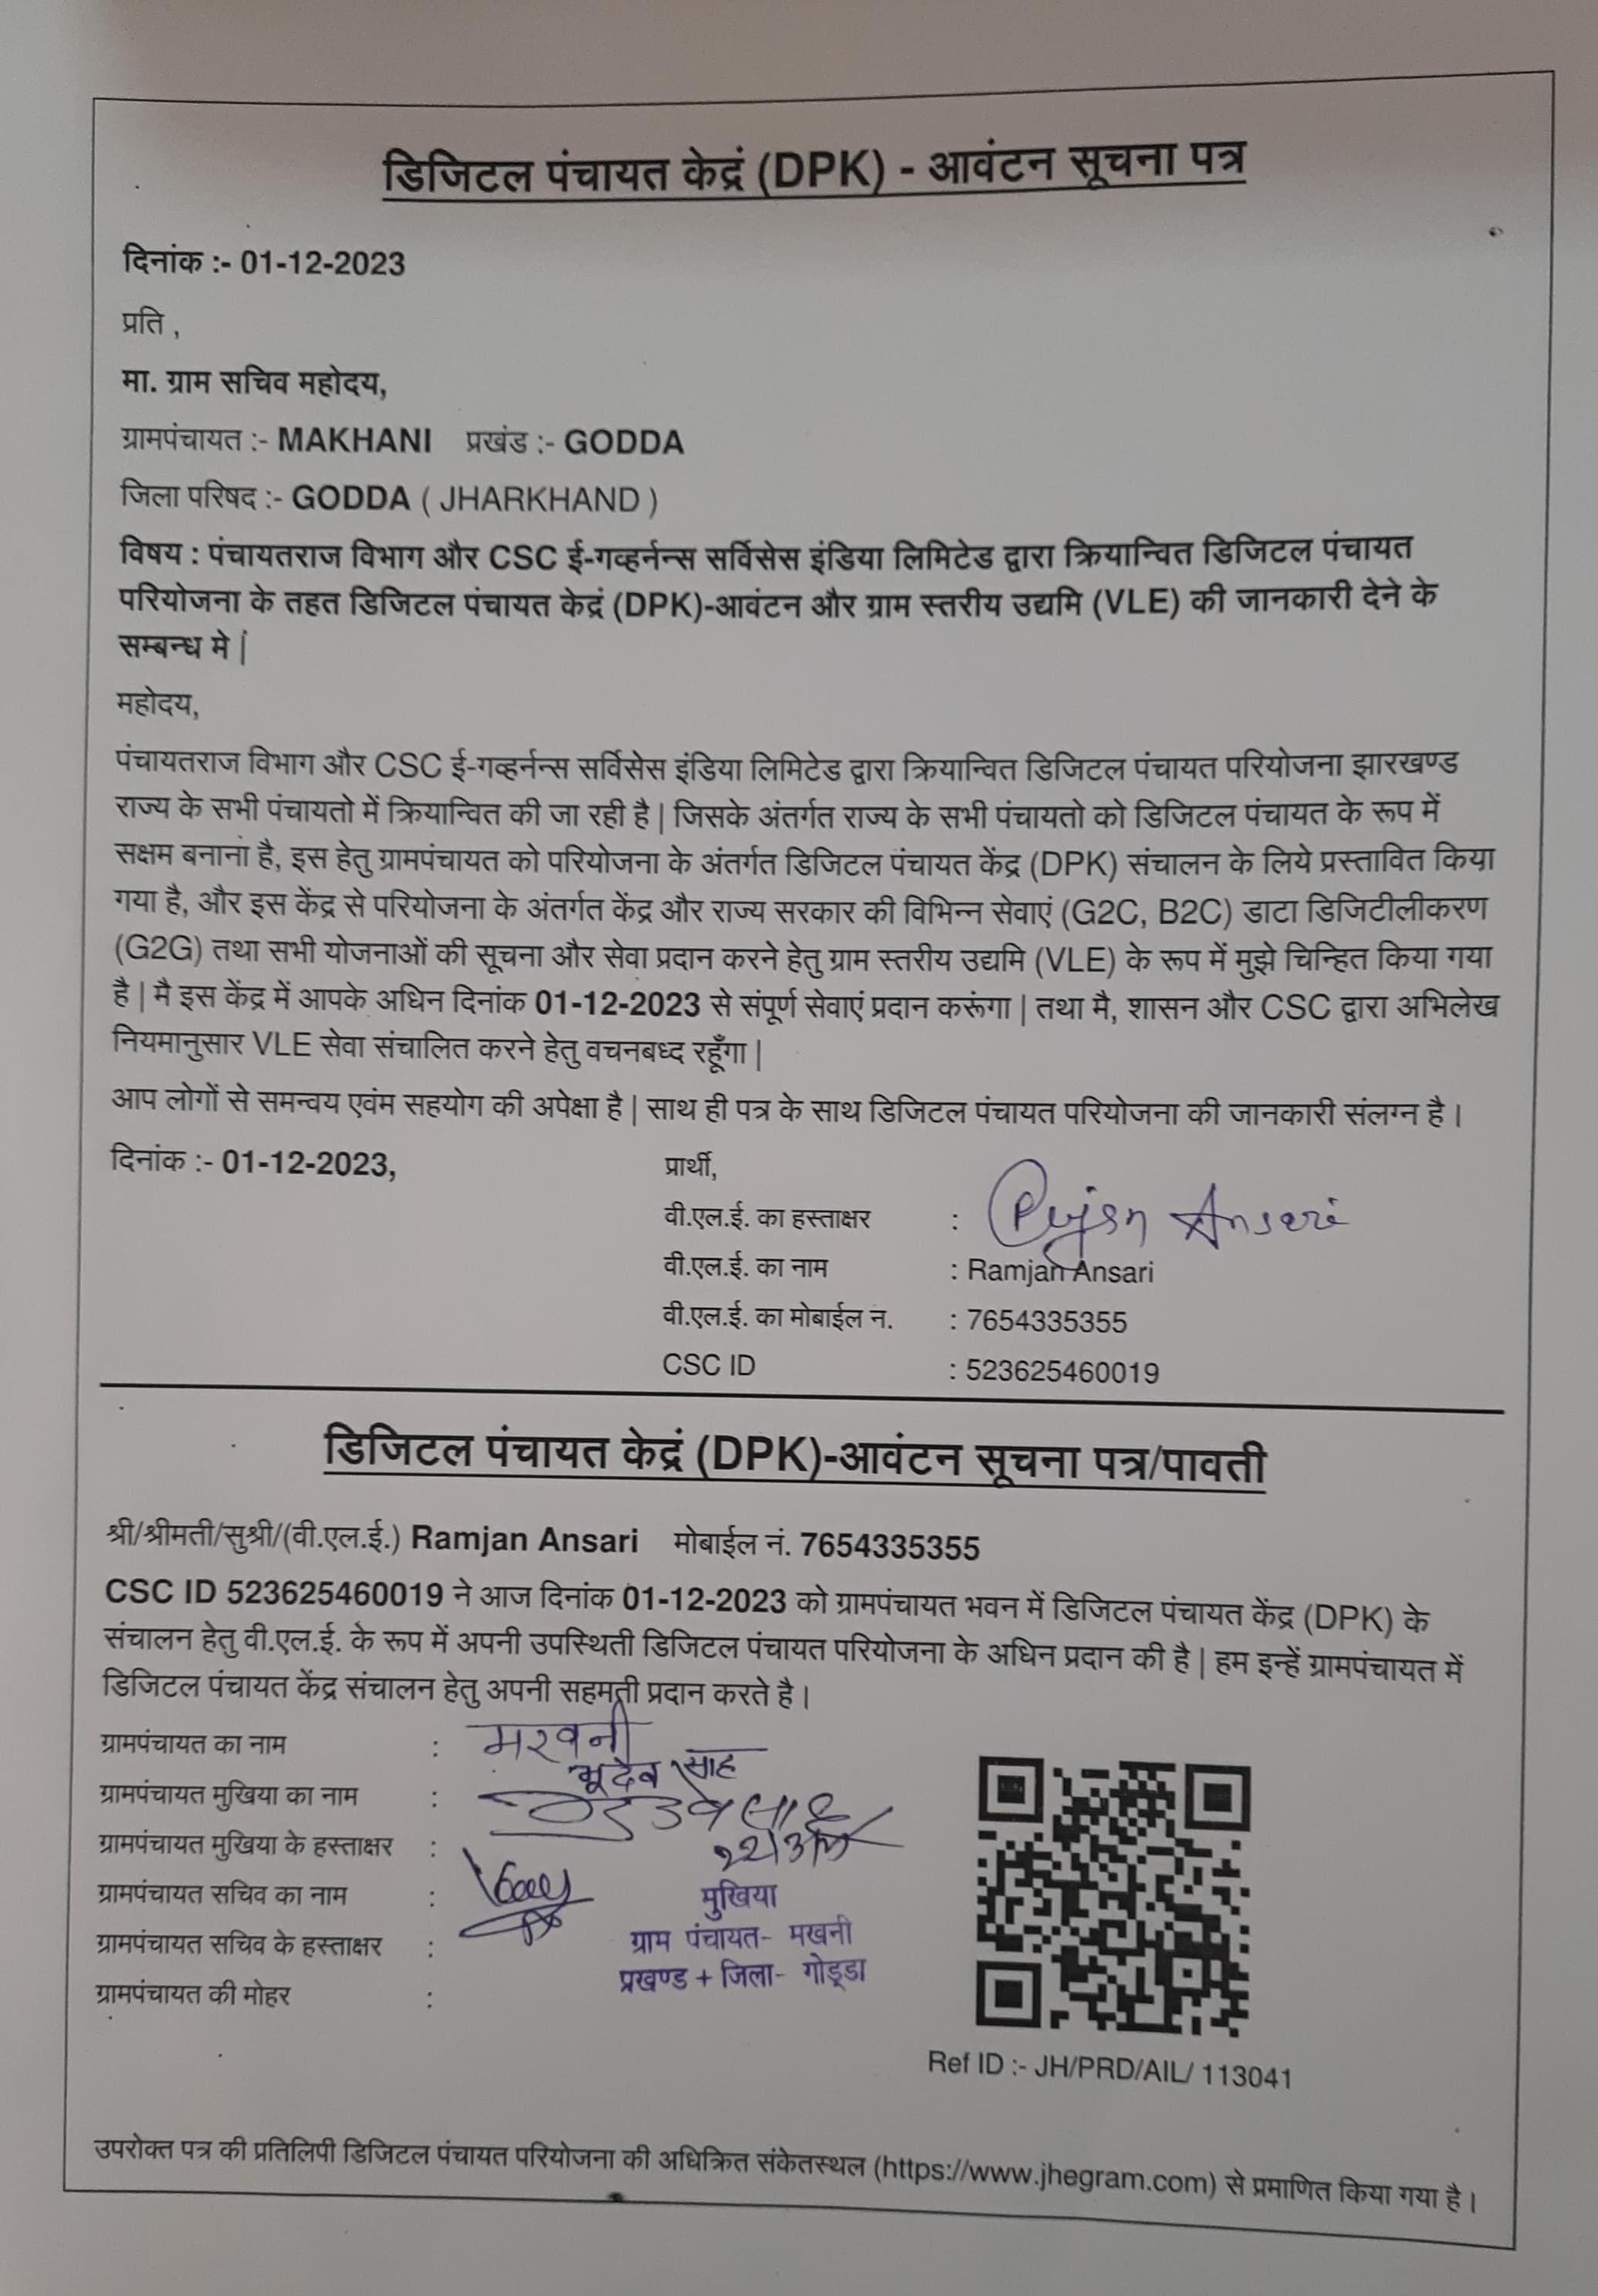 डिजिटल पंचायत केद्रं (DPK) - आवंटन सूचना पत्र
दिनांक :- 01-12-2023
प्रति ,
मा. ग्राम सचिव महोदय,
ग्रामपंचायत :- MAKHANI प्रखंड :- GODDA
जिला परिषद :- GODDA ( JHARKHAND )
विषय : पंचायतराज विभाग और CSC ई-गव्हर्नन्स सर्विसेस इंडिया लिमिटेड द्वारा क्रियान्वित डिजिटल पंचायत
परियोजना के तहत डिजिटल पंचायत केद्रं (DPK)-आवंटन और ग्राम स्तरीय उद्यमि (VLE) की जानकारी देने के
सम्बन्ध मे |
महोदय,
पंचायतराज विभाग और CSC ई-गव्हर्नन्स सर्विसेस इंडिया लिमिटेड द्वारा क्रियान्वित डिजिटल पंचायत परियोजना झारखण्ड
राज्य के सभी पंचायतो में क्रियान्वित की जा रही है | जिसके अंतर्गत राज्य के सभी पंचायतो को डिजिटल पंचायत के रूप में
सक्षम बनाना है, इस हेतु ग्रामपंचायत को परियोजना के अंतर्गत डिजिटल पंचायत केंद्र (DPK) संचालन के लिये प्रस्तावित किया
गया है, और इस केंद्र से परियोजना के अंतर्गत केंद्र और राज्य सरकार की विभिन्न सेवाएं (G2C, B2C) डाटा डिजिटीलीकरण
(G2G) तथा सभी योजनाओं की सूचना और सेवा प्रदान करने हेतु ग्राम स्तरीय उद्यमि (VLE) के रूप में मुझे चिन्हित किया गया
है | मै इस केंद्र में आपके अधिन दिनांक 01-12-2023 से संपूर्ण सेवाएं प्रदान करूंगा | तथा मै, शासन और CSC द्वारा अभिलेख
नियमानुसार VLE सेवा संचालित करने हेतु वचनबध्द रहूँगा |
आप लोगों से समन्वय एवंम सहयोग की अपेक्षा है | साथ ही पत्र के साथ डिजिटल पंचायत परियोजना की जानकारी संलग्न है ।
दिनांक :- 01-12-2023, प्रार्थी,
वी.एल.ई. का हस्ताक्षर : Ansari
वी.एल.ई. का नाम : Ramjan Ansari
वी.एल.ई. का मोबाईल न. : 7654335355
CSC ID : 523625460019
डिजिटल पंचायत केद्रं (DPK)-आवंटन सूचना पत्र/पावती
श्री/श्रीमती/सुश्री/(वी.एल.ई.) Ramjan Ansari मोबाईल नं. 7654335355
CSC ID 523625460019 ने आज दिनांक 01-12-2023 को ग्रामपंचायत भवन में डिजिटल पंचायत केंद्र (DPK) के
संचालन हेतु वी.एल.ई. के रूप में अपनी उपस्थिती डिजिटल पंचायत परियोजना के अधिन प्रदान की है | हम इन्हें ग्रामपंचायत में
डिजिटल पंचायत केंद्र संचालन हेतु अपनी सहमती प्रदान करते है ।
ग्रामपंचायत का नाम : मखनी
ग्रामपंचायत मुखिया का नाम : भूदेव साह
ग्रामपंचायत मुखिया के हस्ताक्षर :
ग्रामपंचायत सचिव का नाम :
मुखिया
ग्रामपंचायत सचिव के हस्ताक्षर :
ग्राम पंचायत- मखनी
प्रखण्ड + जिला- गोड्डा
ग्रामपंचायत की मोहर :
Ref ID :- JH/PRD/AIL/ 113041
उपरोक्त पत्र की प्रतिलिपी डिजिटल पंचायत परियोजना की अधिक्रित संकेतस्थल (https://www.jhegram.com) से प्रमाणित किया गया है ।